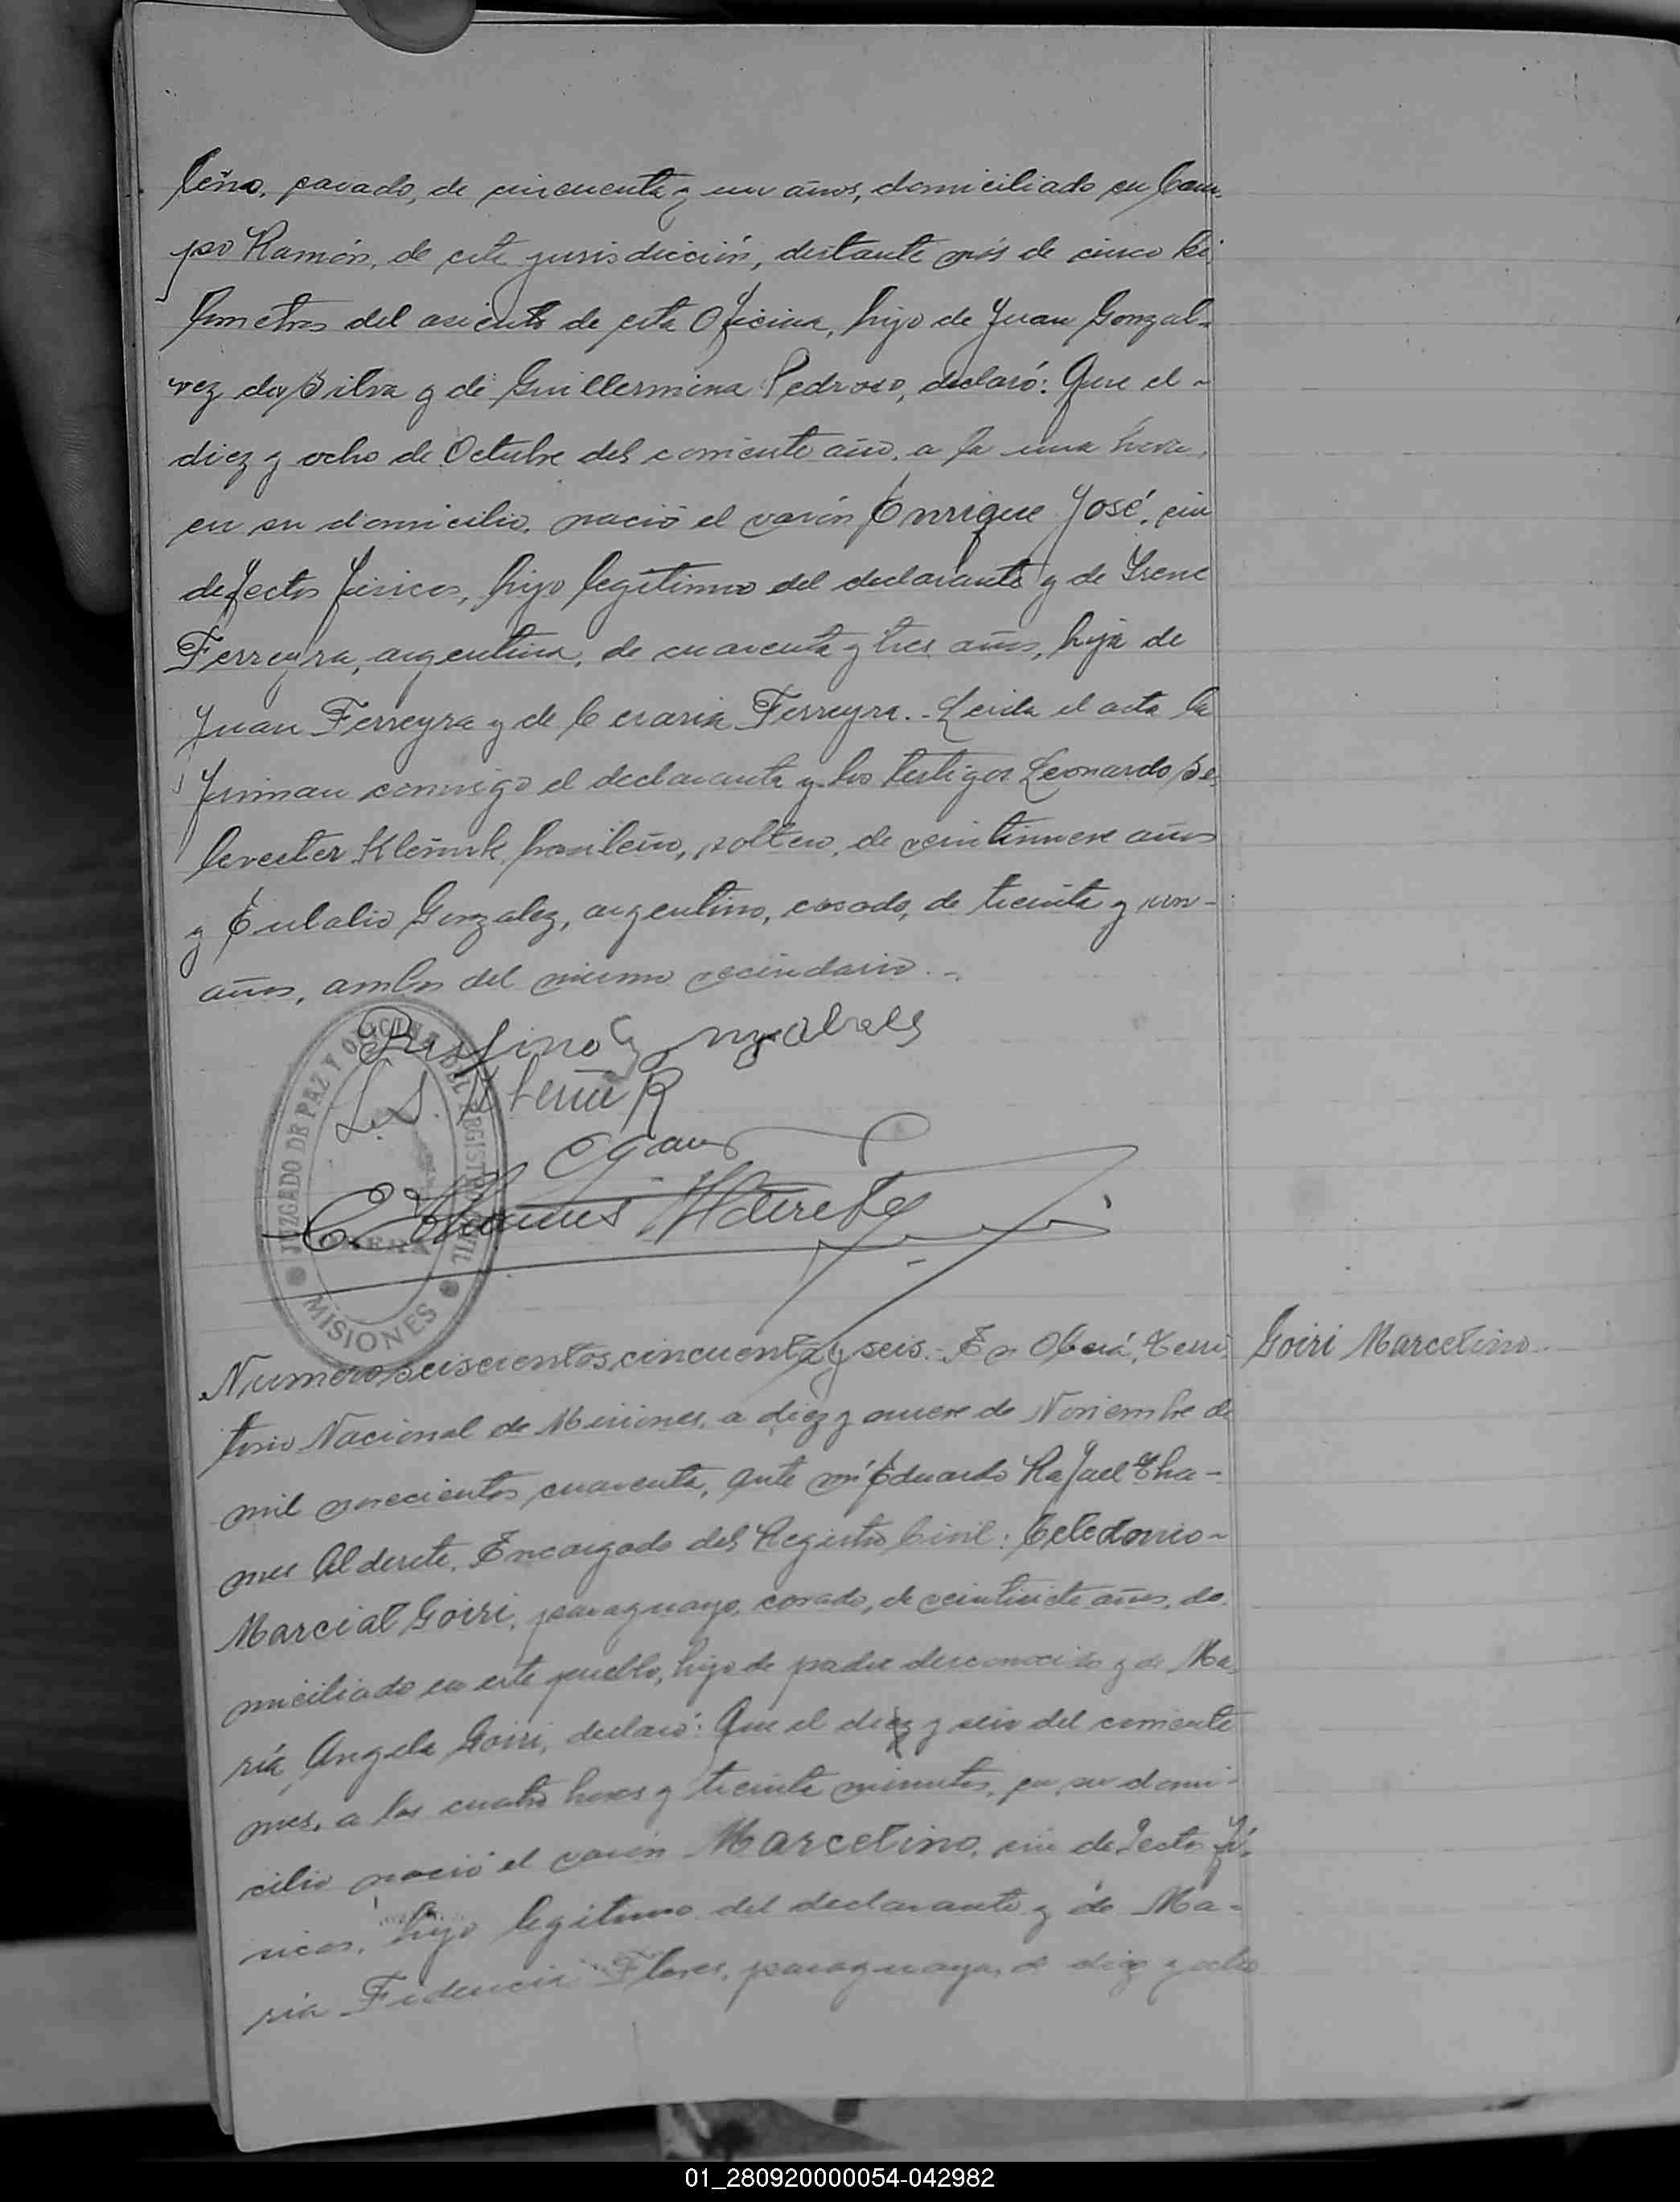 leño, casado, de cincuenta y un años, domiciliado en Cam-
po Ramón, de esta jurisdicción, distante más de cinco ki
lometros del asiento de esta Oficina, hijo de Juan Gonzal-
vez da Silva y de Guillermina Pedroso, declaró: Que el -
diez y ocho de Octubre del corriente año, a la una hora,
en su domicilio, nació el varón Enrique José, sin
defectos físicos, hijo legítimo del declarante y de Irene
Ferreyra, argentina, de cuarenta y tres años, hija de
Juan Ferreyra y de Cesaria Ferreyra.- Leida el acta la
firman conmigo el declarante y los testigos Leonardo Se-
lvester Kleñuk, brasileño, soltero, de veintinueve años
y Eulalio Gonzalez, argentino, casado, de treinta y un -
años, ambos del mismo vecindario. -
Rufino
L. S.
JUZGADO DE PAZ Y OFICINA DEL REGISTRO CIVIL
OBERA
MISIONES
Numero seiscientos cincuenta y seis.- En Oberá, Terri
torio Nacional de Misiones, a diez y nueve de Noviembre de
mil novecientos cuarenta, ante mí Eduardo Rafael Tha-
mes Alderete, Encargado del Registro Civil: Celedonio -
Marcial Goiri, paraguayo, casado, de veintisiete años, do
miciliado en este pueblo, hijo de padre desconocido y de Ma-
ría Angela Goiri, declaró: Que el diez y seis del corriente
mes, a las cuatro horas y treinta minutos, en su domi-
cilio nació el varón Marcelino, sin defectos fí-
sicos, hijo legítimo del declarante y de Ma-
ria Fidencia Flores, paraguaya, de diez y ocho
Goiri Marcelino.
01_280920000054-042982